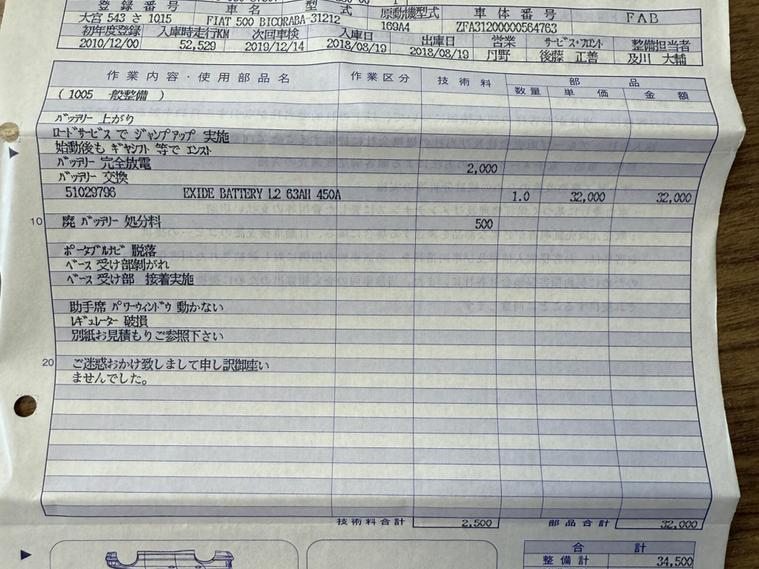 登録番号 車名 型式 原動機型式 車体番号
大宮 543 さ 1015 FIAT 500 BICORABA-31212 169A4 ZFA31200000564763 FAB
初年度登録 入庫時走行KM 次回車検 入庫日 出庫日 営業 サービス・フロント 整備担当者
2010/12/00 52,529 2019/12/14 2018/08/19 2018/08/19 丹野 後藤 正善 及川 大輔
作業内容・使用部品名 作業区分 技術料 部品
数量 単価 金額
(1005 一般整備)
バッテリー 上がり
ロードサービスで ジャンプアップ 実施
始動後も ギヤシフト 等で エンスト
バッテリー 完全放電 2,000
バッテリー 交換
51029796 EXIDE BATTERY L2 63AH 450A 1.0 32,000 32,000
10 廃 バッテリー 処分料 500
ポータブルナビ 脱落
ベース 受け部剝がれ
ベース 受け部 接着実施
助手席 パワーウィンドウ 動かない
レギュレーター 破損
別紙お見積もりご参照下さい
20 ご迷惑おかけ致しまして申し訳御座い
ませんでした。
技術料合計 2,500 部品合計 32,000
合計
整備計 34,500